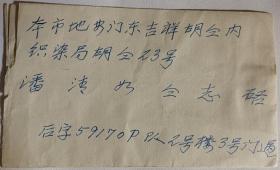 本市地安门东吉祥胡仝内
织染局胡仝23号
潘 清 如 仝 志 啓
后字59170P队2号楼3号门